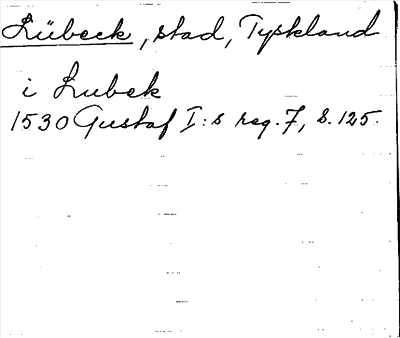 Lübeck, stad, Tyskland
i Lubek
1530 Gustaf I:s reg. 7, s. 125.